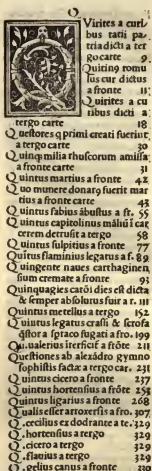 Q
Virites a curibus
tatii patria
dicti a tergo
carte 9
Quintiꝰ romulus
cur dictus
a fronte 11
Quirites a cu
ribus dicti a
tergo carte 18
Questores q primi creati fuerint
a tergo carte 30
Quinq; milia rhuscorum amissa
a fronte carte 31
Quintus martius a fronte 42
Quo munere donarq fuerit mar
tius a fronte carte 43
Quintus fabius ábustus a fr. 55
Quintus capitolinus máliū ī car
cerem detrusit a tergo 58
Quintus sulpitius a fronte 77
Quītus flaminius legatus a f. 89
Quingente naues carthaginen
sium cremate a fronte 93
Quinquagies catō dies est dictа
& semper absolutus fuit a t. 111
Quintus metellus a tergo 152
Quintus legatus crassi & scrofa
qstor a sparaco fugati a fro. 199
Qu. ualerius iterfict' a frōte 211
Questiones ab alexādro gymno
sophistis factæ a tergo car. 231
Quintus cicero a fronte 237
Quintus hortensius a frōte 258
Quintus ligarius a fronte 268
Qualis esset artoxersis a fro. 307
Q. cecilius ex dodrante a te. 329
Q. hortensius a tergo 329
Q. cicero a tergo 329
Q. flauius a tergo 329
Q. gelius canus a fronte 331